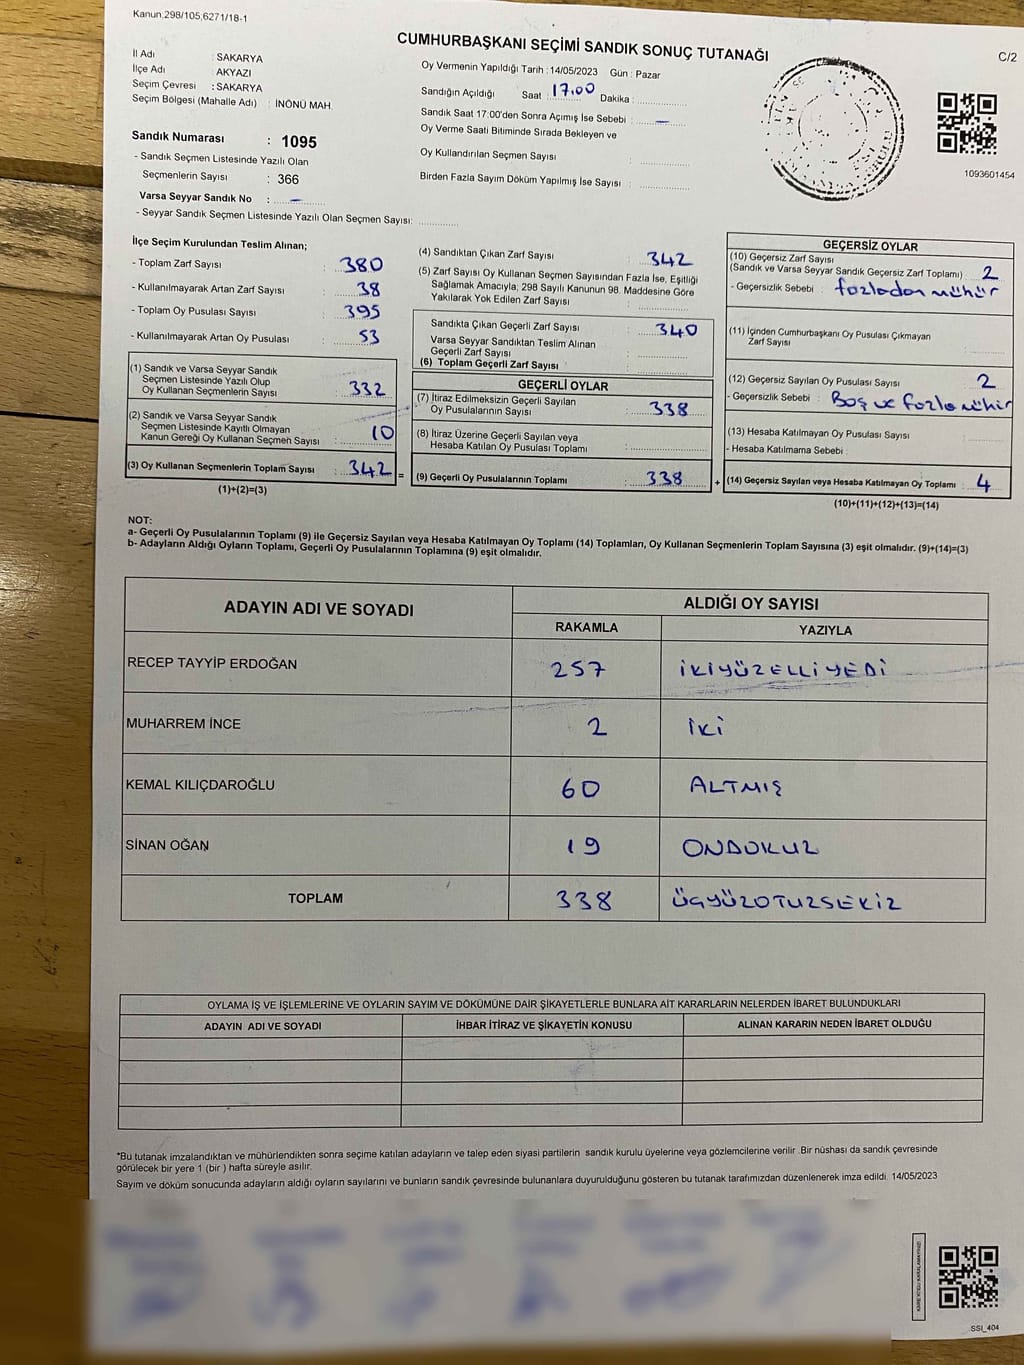 Kanun;298/105,6271/18-1
CUMHURBAŞKANI SEÇİMİ SANDIK SONUÇ TUTANAĞI
C/2
İl Adı : SAKARYA
İlçe Adı : AKYAZI
Seçim Çevresi : SAKARYA
Seçim Bölgesi (Mahalle Adı) : İNÖNÜ MAH.
Sandık Numarası : 1095
- Sandık Seçmen Listesinde Yazılı Olan
Seçmenlerin Sayısı : 366
Varsa Seyyar Sandık No : –
- Seyyar Sandık Seçmen Listesinde Yazılı Olan Seçmen Sayısı:
Oy Vermenin Yapıldığı Tarih : 14/05/2023 Gün : Pazar
Sandığın Açıldığı Saat 17.00 Dakika :
Sandık Saat 17:00'den Sonra Açımış İse Sebebi : –
Oy Verme Saati Bitiminde Sırada Bekleyen ve
Oy Kullandırılan Seçmen Sayısı :
Birden Fazla Sayım Döküm Yapılmış İse Sayısı :
1093601454
İlçe Seçim Kurulundan Teslim Alınan;
- Toplam Zarf Sayısı : 380
- Kullanılmayarak Artan Zarf Sayısı : 38
- Toplam Oy Pusulası Sayısı : 395
- Kullanılmayarak Artan Oy Pusulası : 53
(1) Sandık ve Varsa Seyyar Sandık
Seçmen Listesinde Yazılı Olup
Oy Kullanan Seçmenlerin Sayısı : 332
(2) Sandık ve Varsa Seyyar Sandık
Seçmen Listesinde Kayıtlı Olmayan
Kanun Gereği Oy Kullanan Seçmen Sayısı : 10
(3) Oy Kullanan Seçmenlerin Toplam Sayısı : 342 =
(1)+(2)=(3)
(4) Sandıktan Çıkan Zarf Sayısı : 342
(5) Zarf Sayısı Oy Kullanan Seçmen Sayısından Fazla İse, Eşitliği
Sağlamak Amacıyla, 298 Sayılı Kanunun 98. Maddesine Göre
Yakılarak Yok Edilen Zarf Sayısı :
Sandıkta Çıkan Geçerli Zarf Sayısı : 340
Varsa Seyyar Sandıktan Teslim Alınan
Geçerli Zarf Sayısı :
(6) Toplam Geçerli Zarf Sayısı :
GEÇERLİ OYLAR
(7) İtiraz Edilmeksizin Geçerli Sayılan
Oy Pusulalarının Sayısı : 338
(8) İtiraz Üzerine Geçerli Sayılan veya
Hesaba Katılan Oy Pusulası Toplamı :
(9) Geçerli Oy Pusulalarının Toplamı : 338 +
GEÇERSİZ OYLAR
(10) Geçersiz Zarf Sayısı
(Sandık ve Varsa Seyyar Sandık Geçersiz Zarf Toplamı) : 2
- Geçersizlik Sebebi : fazladan mühür
(11) İçinden Cumhurbaşkanı Oy Pusulası Çıkmayan
Zarf Sayısı :
(12) Geçersiz Sayılan Oy Pusulası Sayısı : 2
- Geçersizlik Sebebi : Boş ve fazla mühür
(13) Hesaba Katılmayan Oy Pusulası Sayısı :
- Hesaba Katılmama Sebebi :
(14) Geçersiz Sayılan veya Hesaba Katılmayan Oy Toplamı : 4
(10)+(11)+(12)+(13)=(14)
NOT:
a- Geçerli Oy Pusulalarının Toplamı (9) ile Geçersiz Sayılan veya Hesaba Katılmayan Oy Toplamı (14) Toplamları, Oy Kullanan Seçmenlerin Toplam Sayısına (3) eşit olmalıdır. (9)+(14)=(3)
b- Adayların Aldığı Oyların Toplamı, Geçerli Oy Pusulalarının Toplamına (9) eşit olmalıdır.
ADAYIN ADI VE SOYADI ALDIĞI OY SAYISI
RAKAMLA YAZIYLA
RECEP TAYYİP ERDOĞAN 257 İKİYÜZELLİYEDİ
MUHARREM İNCE 2 İKİ
KEMAL KILIÇDAROĞLU 60 ALTMIŞ
SİNAN OĞAN 19 ONDOKUZ
TOPLAM 338 ÜÇYÜZOTUZSEKİZ
OYLAMA İŞ VE İŞLEMLERİNE VE OYLARIN SAYIM VE DÖKÜMÜNE DAİR ŞİKAYETLERLE BUNLARA AİT KARARLARIN NELERDEN İBARET BULUNDUKLARI
ADAYIN ADI VE SOYADI İHBAR İTİRAZ VE ŞİKAYETİN KONUSU ALINAN KARARIN NEDEN İBARET OLDUĞU
*Bu tutanak imzalandıktan ve mühürlendikten sonra seçime katılan adayların ve talep eden siyasi partilerin sandık kurulu üyelerine veya gözlemcilerine verilir. Bir nüshası da sandık çevresinde
görülecek bir yere 1 (bir ) hafta süreyle asılır.
Sayım ve döküm sonucunda adayların aldığı oyların sayılarını ve bunların sandık çevresinde bulunanlara duyurulduğunu gösteren bu tutanak tarafımızdan düzenlenerek imza edildi. 14/05/2023
KARE KODU KARALAMAYINIZ!
SSI_404